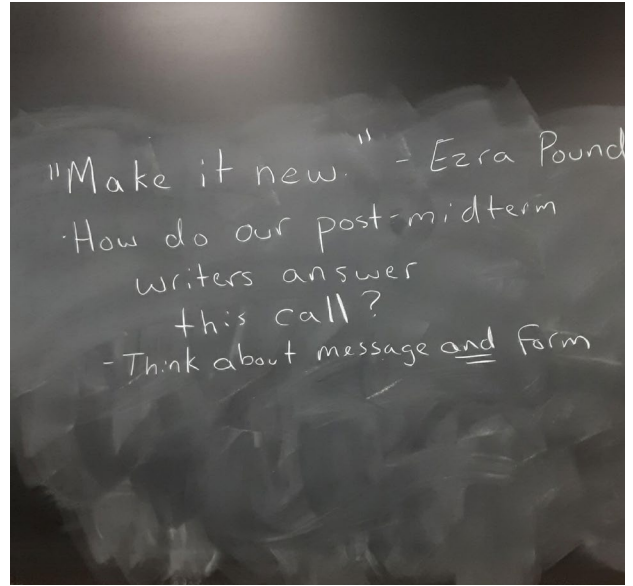 "Make it new." - Ezra Pound
·How do our post-midterm
writers answer
this call?
- Think about message and form